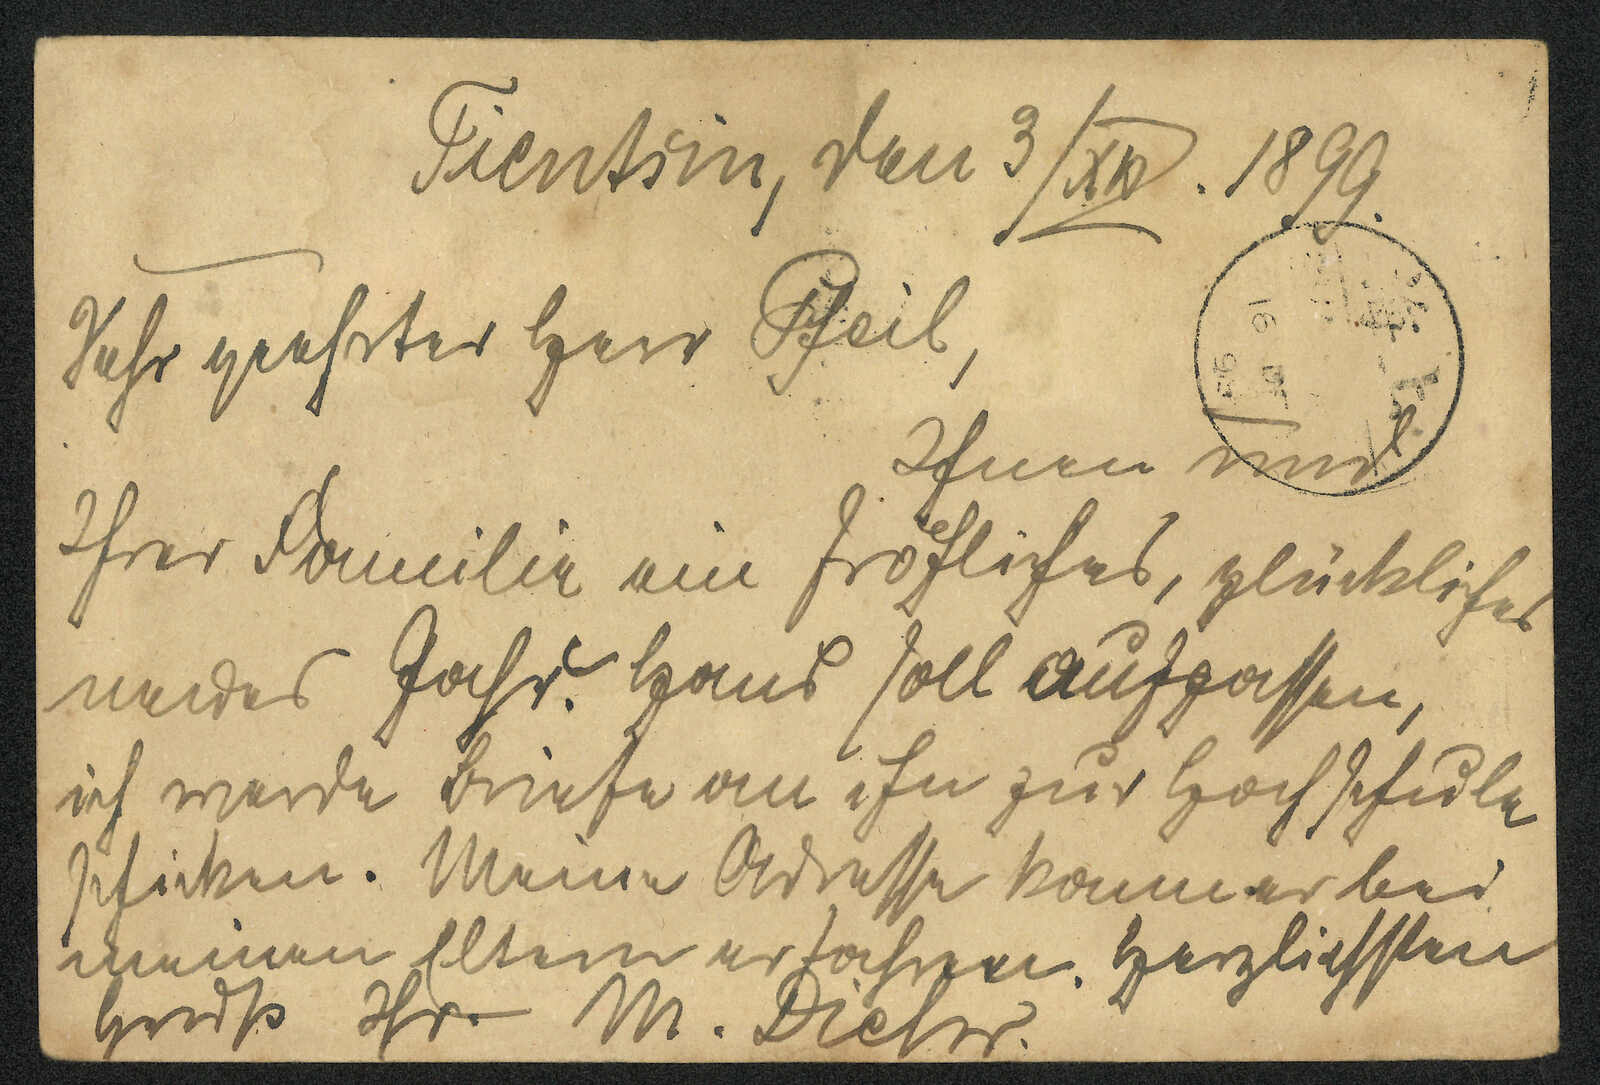 Tientsin, den 3/XII. 1899.
Sehr geehrter Herr Pfeil,
Ihnen und
Ihrer Familie ein fröhliches, glückliches
neues Jahr. Hans soll aufpassen,
ich werde Briefe an ihn zur Hochschule
schicken. Meine Adresse kann er bei
meinen Eltern erfahren. Herzlichsten
Gruß Ihr M.
16